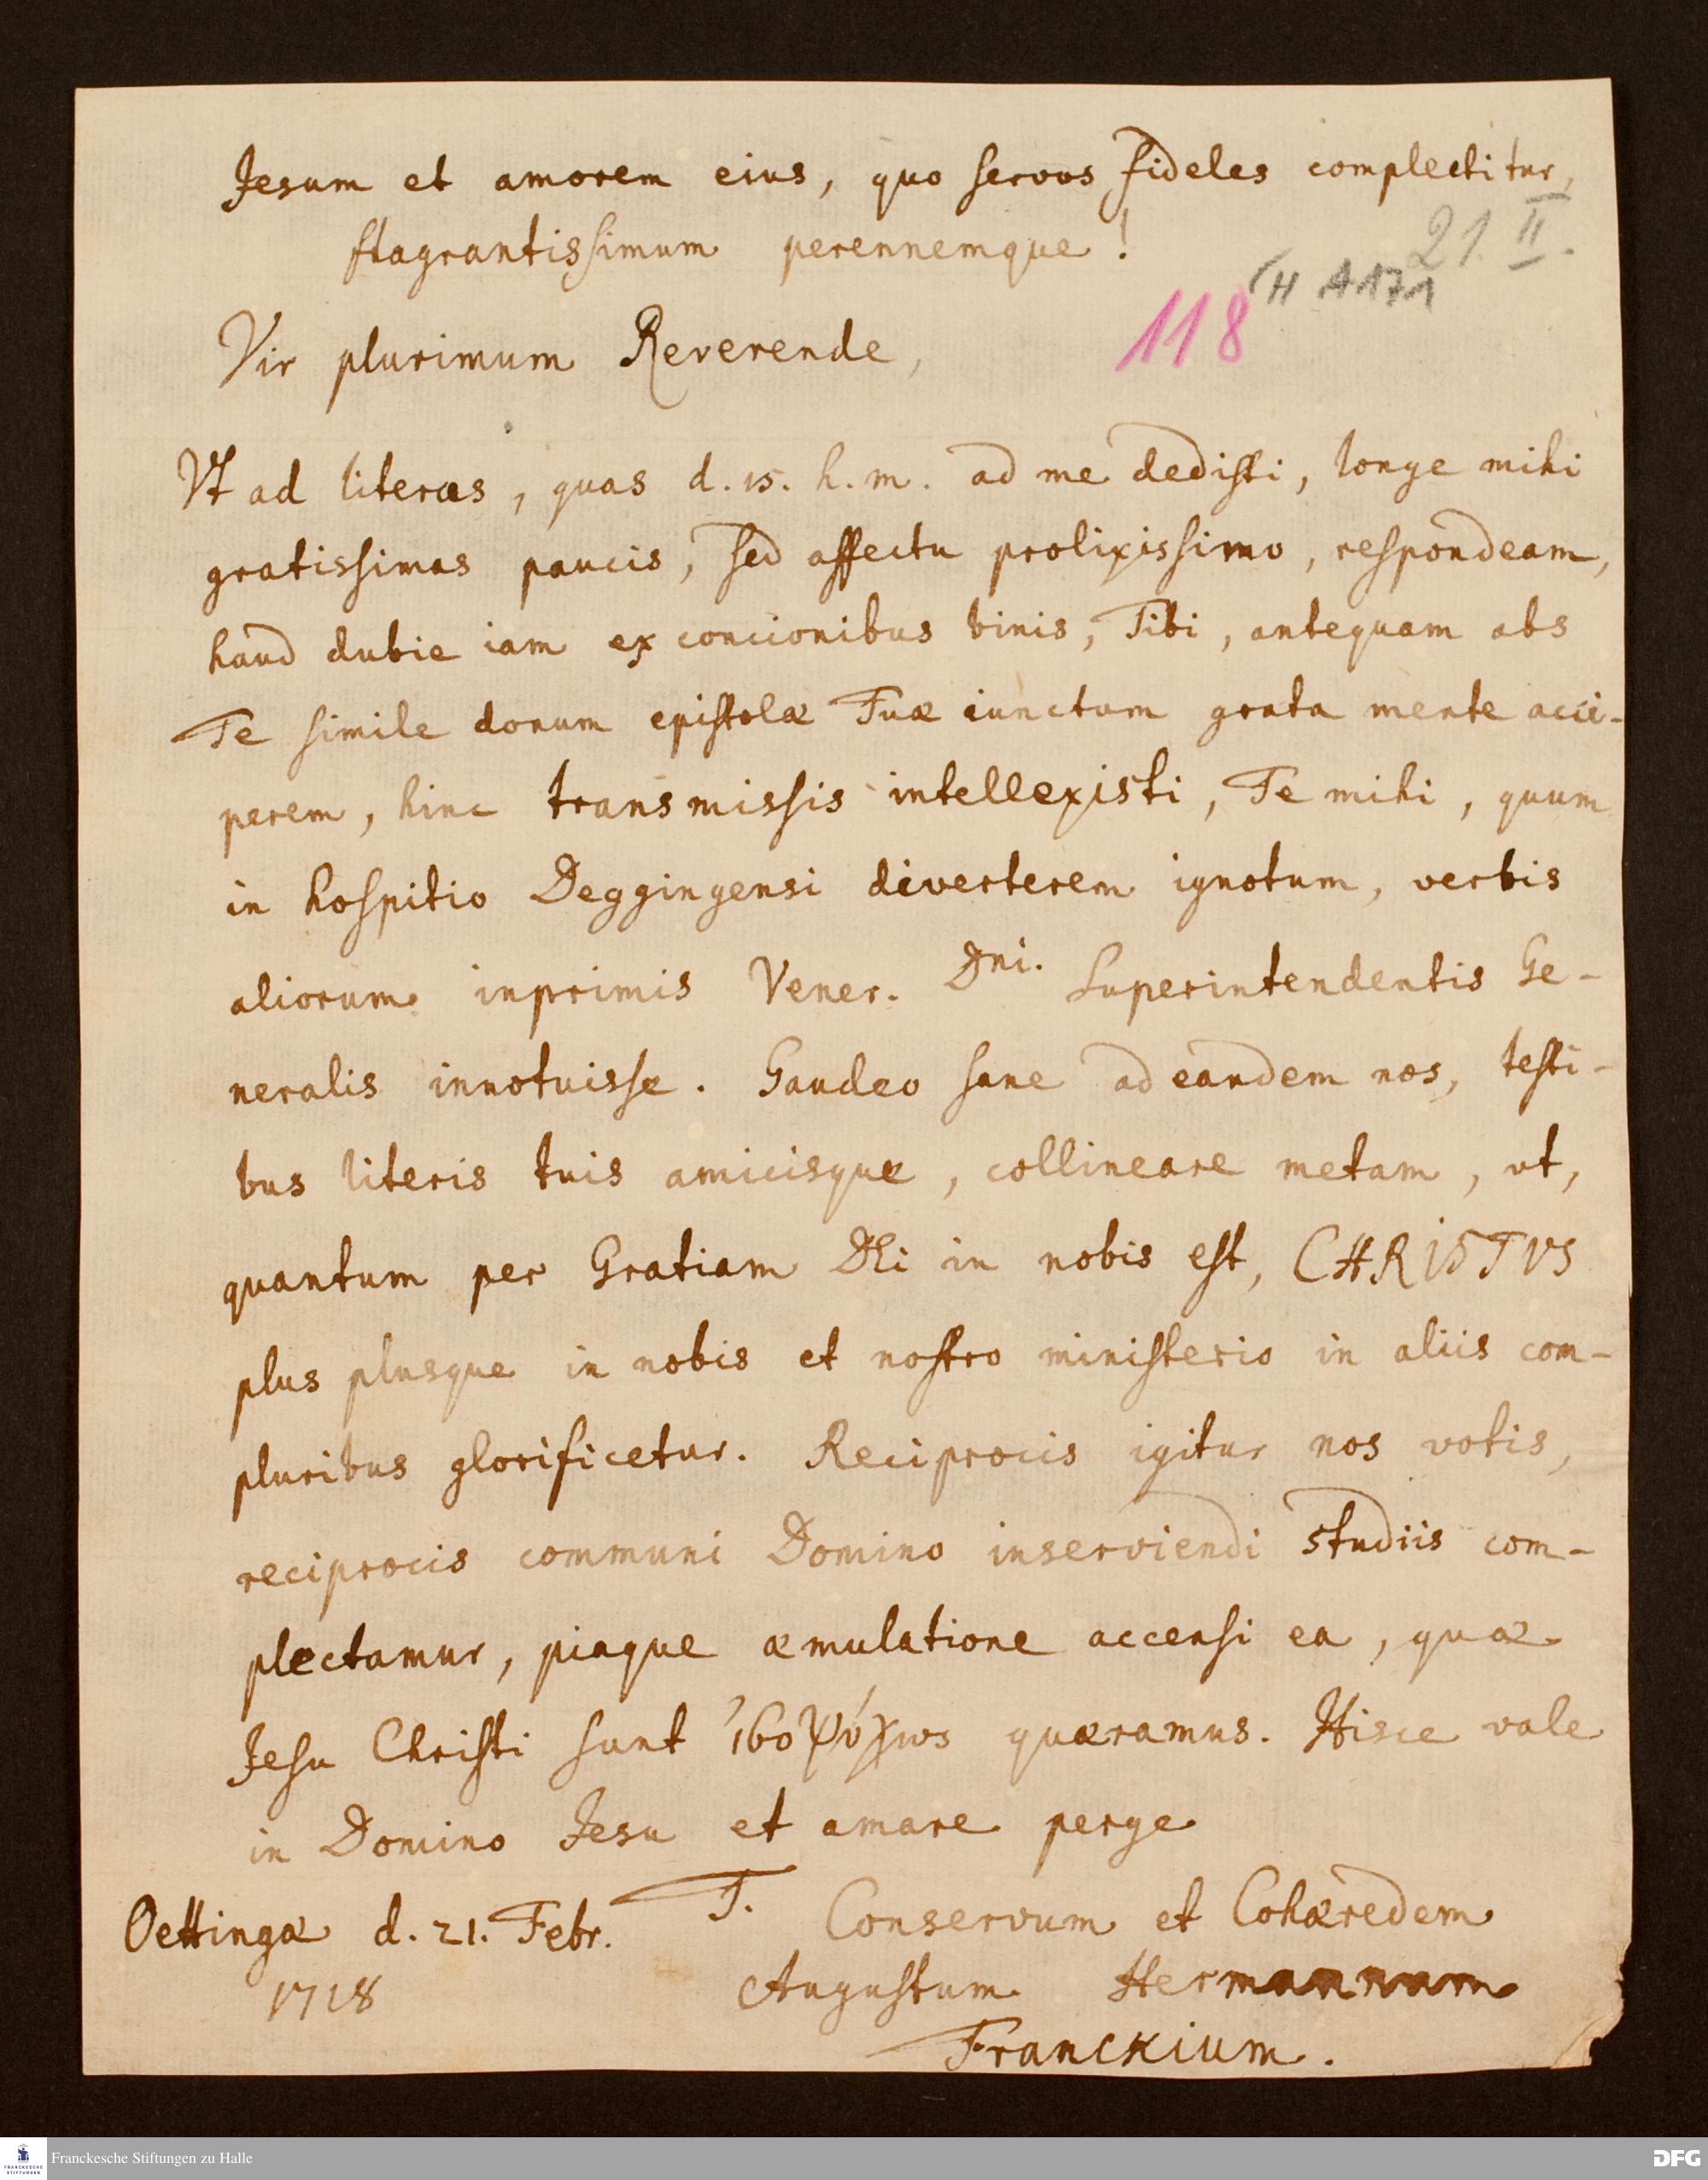 Jesum et amorem eius, quo servos fideles complectitur,
flagrantissimum perennemque!
21. II.
H A171
118
Vir plurimum Reverende,
Vt ad literas, quas d. 15. h. m. ad me dedisti, longe mihi
gratissimas paucis, sed affectu prolixissimo, respondeam,
haud dubie iam ex concionibus binis, Tibi, antequam abs
Te simile donum epistolæ Tuæ iunctum grata mente acci-
perem, hinc transmissis intellexisti, Te mihi, quum
in hospitio Deggingensi diverterem ignotum, verbis
aliorum inprimis Vener. Dni. Superintendentis Ge-
neralis innotuisse. Gaudeo sane ad eandem nos, testi-
bus literis tuis amicisque, collineare metam, vt,
quantum per Gratiam DEi in nobis est, CHRISTVS
plus plusque in nobis et nostro ministerio in aliis com-
pluribus glorificetur. Reciprocis igitur nos votis,
reciprocis communi Domino inserviendi studiis com-
plectamur, piaque æmulatione accensi ea, quæ
Jesu Christi sunt ἰσοψύχως quæramus. Hisce vale
in Domino Jesu et amare perge
T. Conservum et Cohæredem
Oettingæ d. 21. Febr.
1718
Augustum Hermannum
Franckium.
Franckesche Stiftungen zu Halle
FRANCKESCHE
STIFTUNGEN
DFG